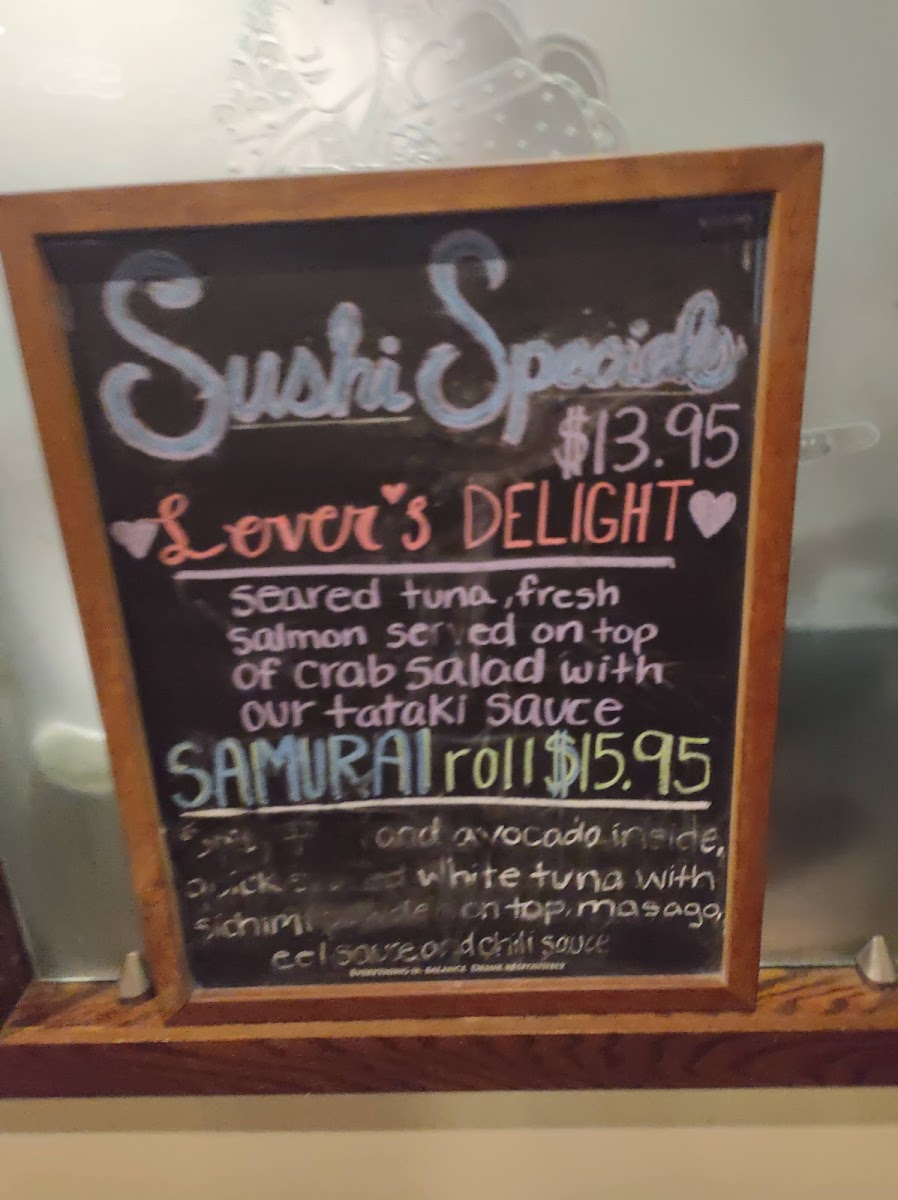 Sushi Specials
$13.95
Lover's DELIGHT
seared tuna, fresh
salmon served on top
of crab salad with
our tataki sauce
SAMURAI roll $15.95
and avocado inside,
white tuna with
on top, masago,
eel sauce and chili sauce
EVERYTHING IN BALANCE. DRINK RESPONSIBLY